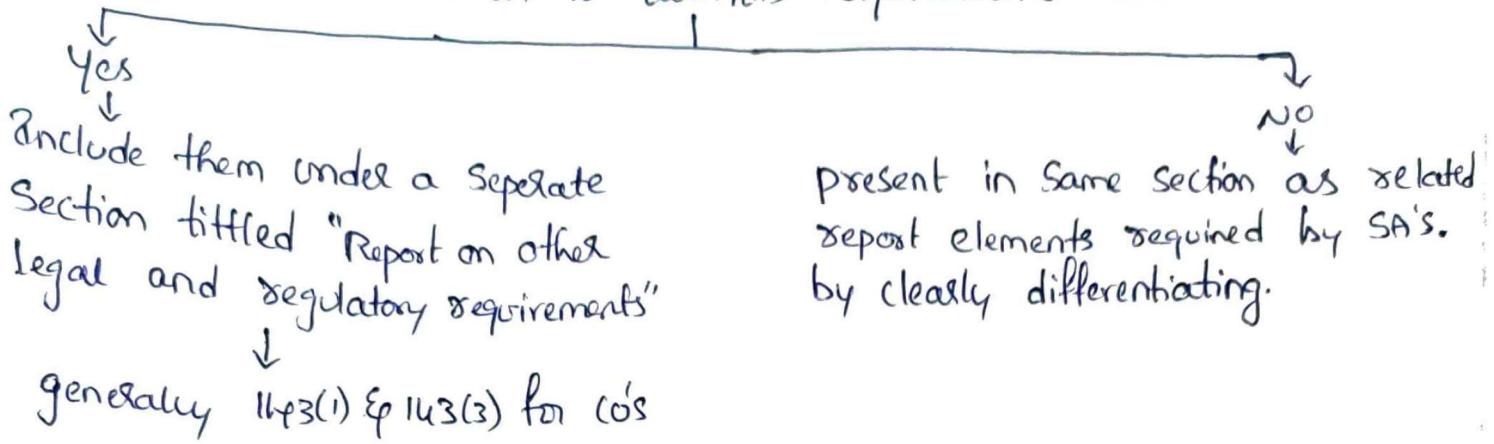 Yes
Include them under a Seperate
Section tittled "Report on other
legal and regulatory requirements"
generally 143(1) & 143(3) for co's
NO
present in Same section as related
report elements required by SA'S.
by clearly differentiating.